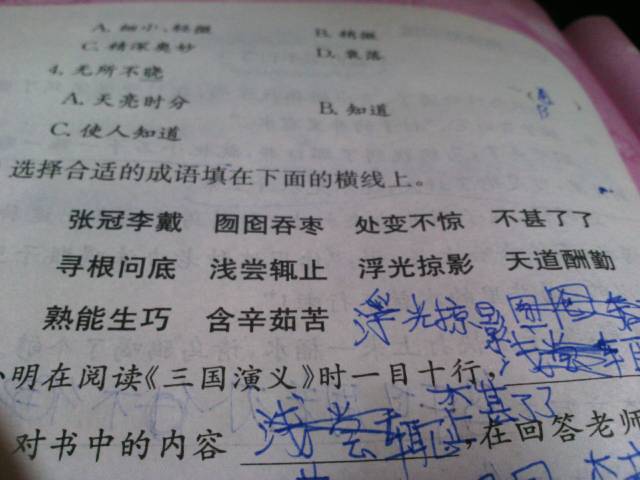 A. 细小、轻微 B. 稍微
C. 精深奥妙 D. 衰落
4. 无所不晓
A. 天亮时分 B. 知道
C. 使人知道
选择合适的成语填在下面的横线上。
张冠李戴 囫囵吞枣 处变不惊 不甚了了
寻根问底 浅尝辄止 浮光掠影 天道酬勤
熟能生巧 含辛茹苦 浮光掠影
小明在阅读《三国演义》时一目十行,
不甚了了
对书中的内容 浅尝辄止,在回答老师